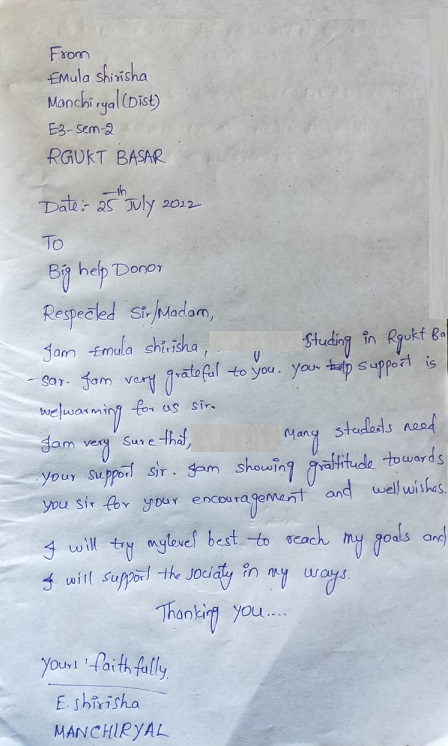 From
Emula shirisha
Manchiryal (Dist)
E3-sem-2
RGUKT BASAR
Date:- 25th July 2022
To
Big help Donor
Respected Sir/Madam,
Iam Emula shirisha, Studing in Rgukt Ba
-sar. Iam very grateful to you. your support is
welwarming for us sir.
Iam very sure that, Many students need
your support sir. Iam showing grattitude towards
you sir for your encouragement and wellwishes.
I will try mylevel best to reach my goals and
I will support the sociaty in my ways.
Thanking you....
yours faithfully
E. shirisha
MANCHIRYAL